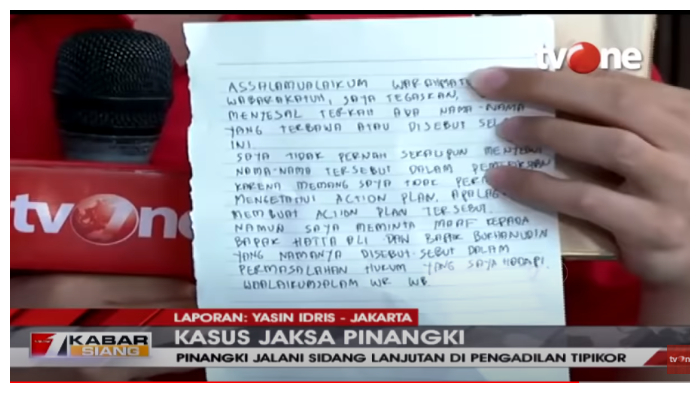 tvOne
ASSALAMUALAIKUM WARAHMAT
WABARAKATUH, SAYA TEGASKAN,
MENYESAL TERKAH ADA NAMA-NAMA
YANG TERBAWA ATAU DISEBUT SEL
INI.
SAYA TIDAK PERNAH SEKALIPUN MENYEBUT
NAMA-NAMA TERSEBUT DALAM PEMERIKSAAN
KARENA MEMANG SAYA TIDAK PER
MENGETAHUI ACTION PLAN, APALAG
MEMBUAT ACTION PLAN TERSEBUT.
NAMUN SAYA MEMINTA MAAF KEPADA
BAPAK HATTA ALI DAN BAPAK BURHANUDIN
YANG NAMANYA DISEBUT-SEBUT DALAM
PERMASALAHAN HUKUM YANG SAYA HADAPI.
WAALAIKUMSALAM WR WB
tvOne
LAPORAN: YASIN IDRIS - JAKARTA
KABAR
SIANG
KASUS JAKSA PINANGKI
PINANGKI JALANI SIDANG LANJUTAN DI PENGADILAN TIPIKOR